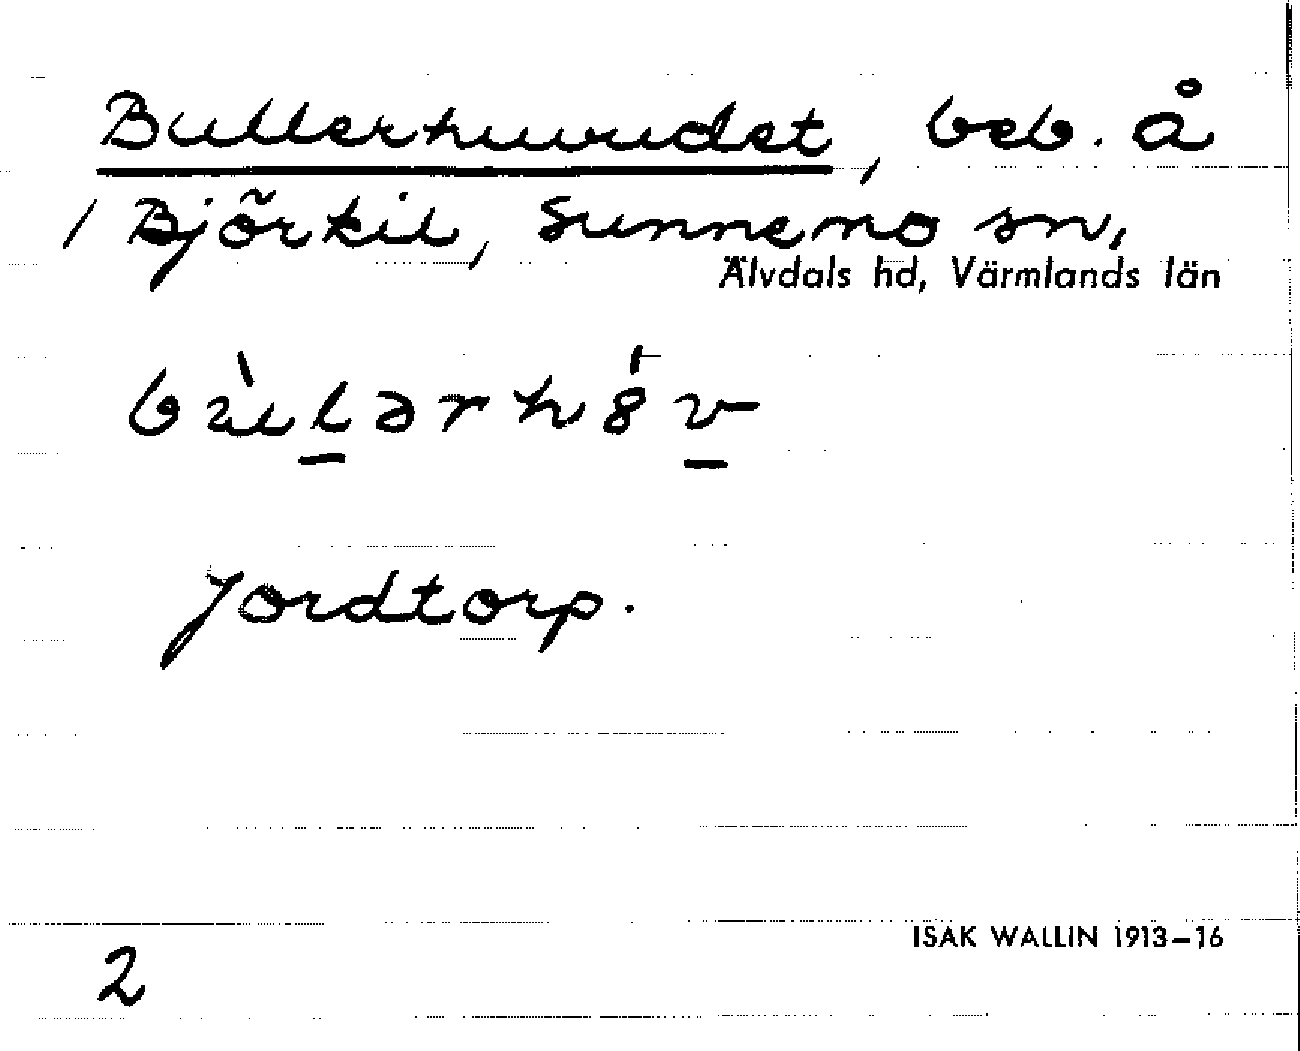 Bullerhuvudet, beb. å
/ Björkil, Sunnemo sn,
Älvdals hd, Värmlands län
Jordtorp.
ISAK WALLIN 1913–16
2